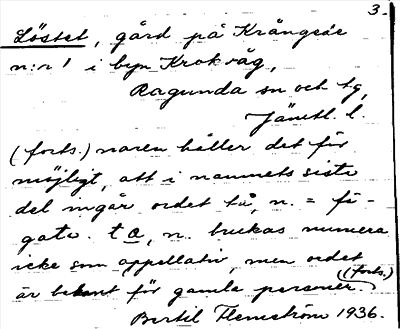 3.
Löstet, gård på Krångede
n:r 1 i byn Krokvåg,
Ragunda sn och tg,
Jämtl. l.
(forts.) naren håller det för
möjligt, att i namnets sista
del ingår ordet n. = fä-
gata. ta, n. brukas numera
icke som appellativ, men ordet
är bekant för gamla personer.
(forts.)
Bertil Flemström 1936.